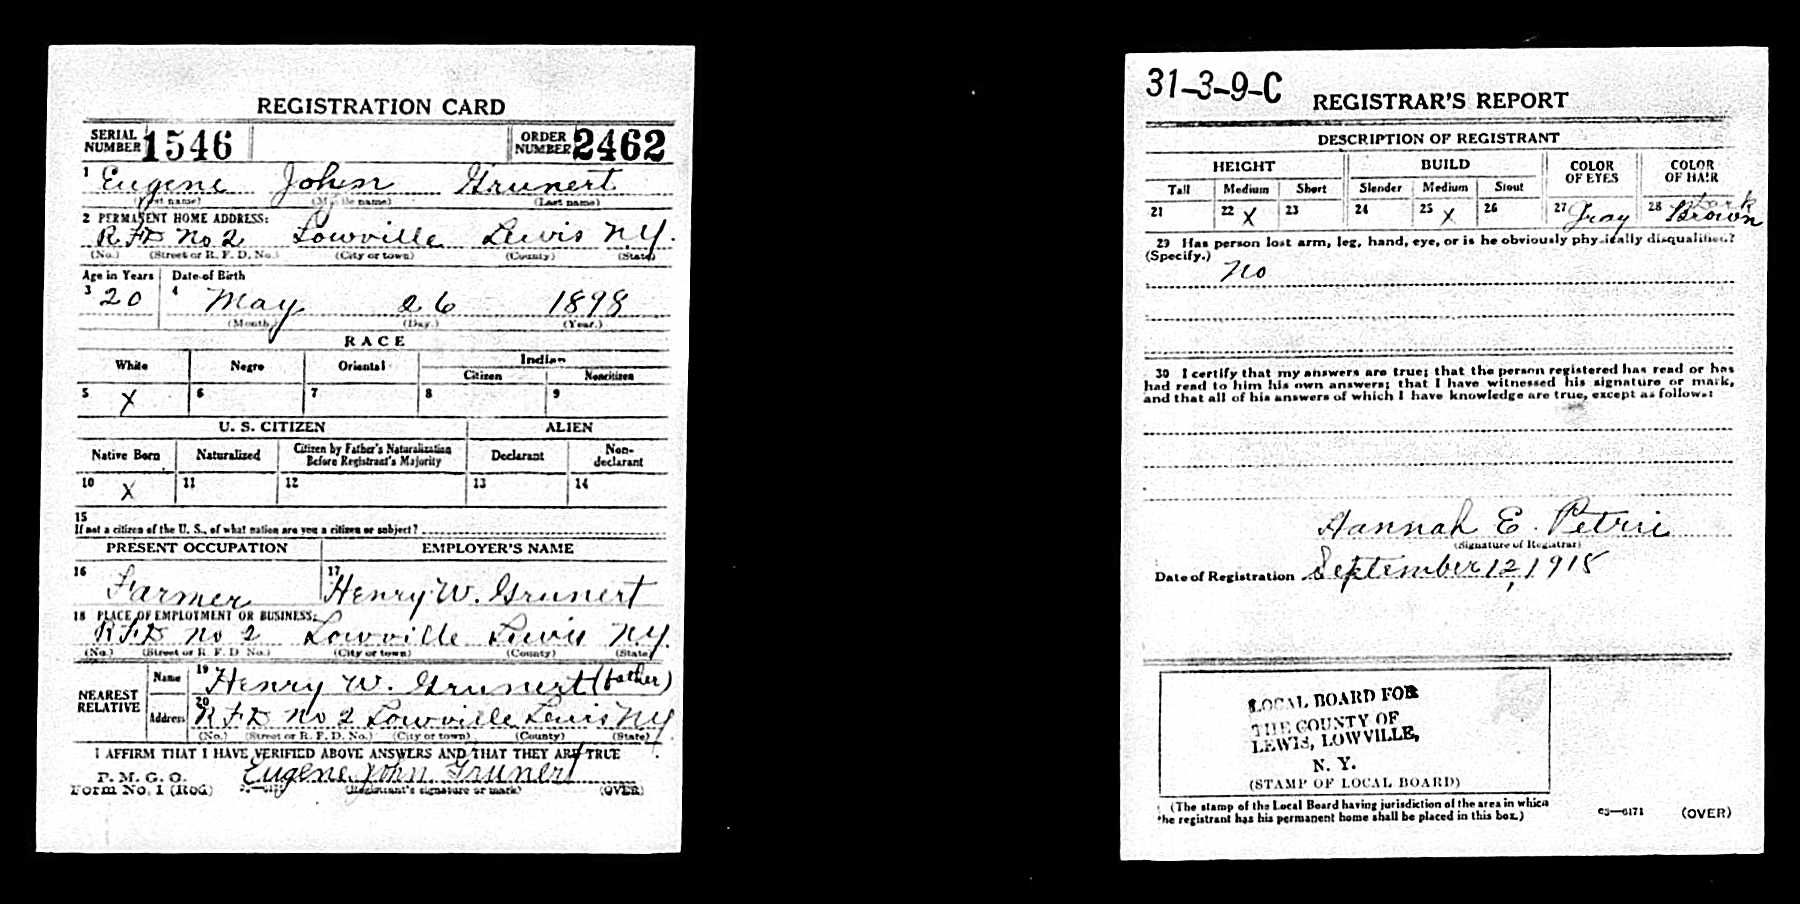 REGISTRATION CARD
SERIAL NUMBER 1546 ORDER NUMBER 2462
1 Eugene John Grunert
(First name) (Middle name) (Last name)
2 PERMANENT HOME ADDRESS:
R.F.D No. 2 Lowville Lewis N.Y.
(No.) (Street or R. F. D. No.) (City or town) (County) (State)
Age in Years Date of Birth
3 20 4 May 26 1898
(Month.) (Day.) (Year.)
RACE
White Negro Oriental Indian
Citizen Noncitizen
5 X 6 7 8 9
U. S. CITIZEN ALIEN
Native Born Naturalized Citizen by Father's Naturalization Before Registrant's Majority Declarant Non-declarant
10 X 11 12 13 14
15
If not a citizen of the U. S., of what nation are you a citizen or subject?
PRESENT OCCUPATION EMPLOYER'S NAME
16 Farmer 17 Henry W. Grunert
18 PLACE OF EMPLOYMENT OR BUSINESS:
R.F.D No 2 Lowville Lewis N.Y.
(No.) (Street or R. F. D. No.) (City or town) (County) (State)
NEAREST RELATIVE
Name 19 Henry W. Grunert (father)
Address 20 R.F.D No 2 Lowville Lewis N.Y.
(No.) (Street or R. F. D. No.) (City or town) (County) (State)
I AFFIRM THAT I HAVE VERIFIED ABOVE ANSWERS AND THAT THEY ARE TRUE
P. M. G. O.
Form No. 1 (Red) Eugene John Grunert
(Registrant's signature or mark) (OVER)
31-3-9-C REGISTRAR'S REPORT
DESCRIPTION OF REGISTRANT
HEIGHT BUILD COLOR OF EYES COLOR OF HAIR
Tall Medium Short Slender Medium Stout
21 22 X 23 24 25 X 26 27 Gray 28 Dark Brown
29 Has person lost arm, leg, hand, eye, or is he obviously physically disqualified?
(Specify.) No
30 I certify that my answers are true; that the person registered has read or has
had read to him his own answers; that I have witnessed his signature or mark,
and that all of his answers of which I have knowledge are true, except as follows:
Hannah E. Petrie
(Signature of Registrar)
Date of Registration September 12, 1918
LOCAL BOARD FOR
THE COUNTY OF
LEWIS, LOWVILLE,
N. Y.
(STAMP OF LOCAL BOARD)
(The stamp of the Local Board having jurisdiction of the area in which
the registrant has his permanent home shall be placed in this box.)
03—6171 (OVER)